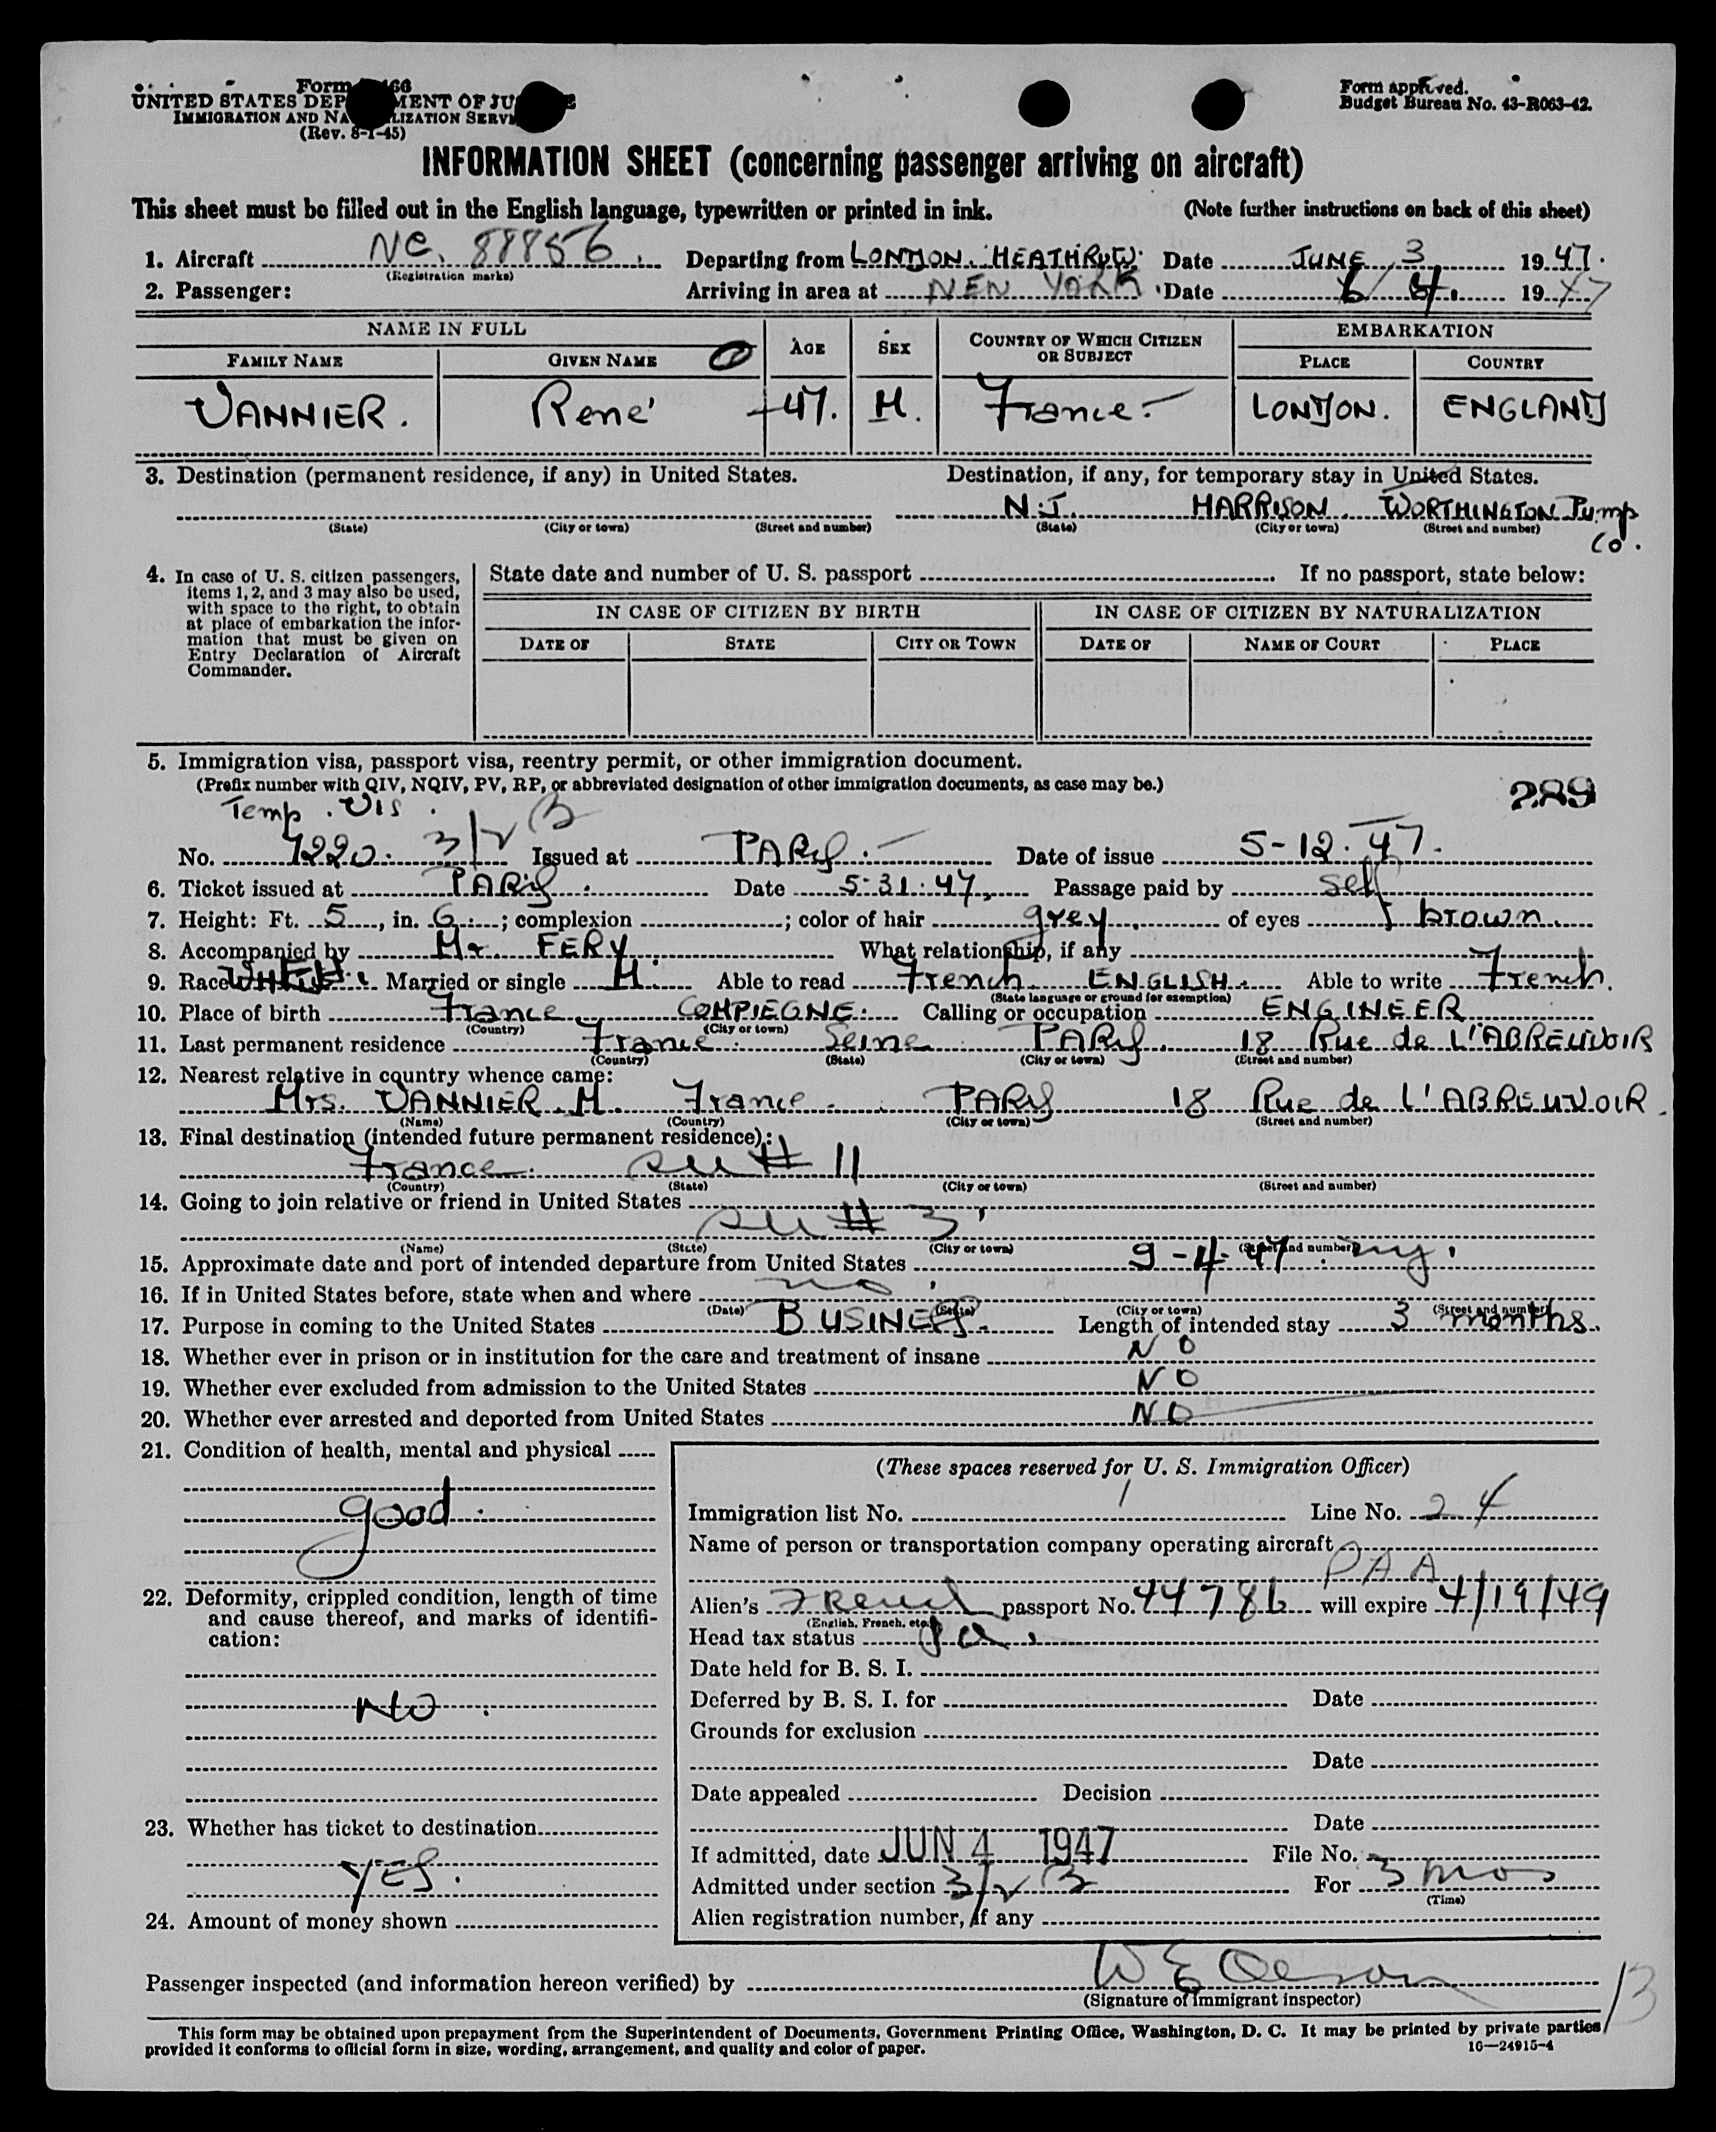 Form 466
UNITED STATES DEPARTMENT OF JUSTICE
IMMIGRATION AND NATURALIZATION SERVICE
(Rev. 8-1-45)
Form approved.
Budget Bureau No. 43-R063-42.
INFORMATION SHEET (concerning passenger arriving on aircraft)
This sheet must be filled out in the English language, typewritten or printed in ink. (Note further instructions on back of this sheet)
1. Aircraft NC. 88856. Departing from LONDON. HEATHROW. Date JUNE 3 1947.
(Registration marks)
2. Passenger: Arriving in area at NEW YORK. Date 6/4. 1947
NAME IN FULL AGE SEX COUNTRY OF WHICH CITIZEN OR SUBJECT EMBARKATION
FAMILY NAME GIVEN NAME PLACE COUNTRY
VANNIER. René 47. M. France. LONDON. ENGLAND
3. Destination (permanent residence, if any) in United States. Destination, if any, for temporary stay in United States.
N.J. HARRISON. WORTHINGTON Pump Co.
(State) (City or town) (Street and number) (State) (City or town) (Street and number)
4. In case of U. S. citizen passengers, items 1, 2, and 3 may also be used, with space to the right, to obtain at place of embarkation the information that must be given on Entry Declaration of Aircraft Commander.
State date and number of U. S. passport If no passport, state below:
IN CASE OF CITIZEN BY BIRTH IN CASE OF CITIZEN BY NATURALIZATION
DATE OF STATE CITY OR TOWN DATE OF NAME OF COURT PLACE
5. Immigration visa, passport visa, reentry permit, or other immigration document.
(Prefix number with QIV, NQIV, PV, RP, or abbreviated designation of other immigration documents, as case may be.)
289
Temp. Vis. 3/2 B
No. 7220. Issued at PARIS. Date of issue 5-12.47.
6. Ticket issued at PARIS. Date 5.31.47. Passage paid by self
7. Height: Ft. 5, in. 6.; complexion ; color of hair grey. of eyes brown.
8. Accompanied by Mr. FERY. What relationship, if any
9. Race WHITE. Married or single M. Able to read French. ENGLISH. Able to write French.
(State language or ground for exemption)
10. Place of birth France COMPIEGNE. Calling or occupation ENGINEER
(Country) (City or town)
11. Last permanent residence France. Seine PARIS. 18 Rue de L'ABREUVOIR
(Country) (State) (City or town) (Street and number)
12. Nearest relative in country whence came:
Mrs. VANNIER. M. France. PARIS 18 Rue de L'ABREUVOIR.
(Name) (Country) (City or town) (Street and number)
13. Final destination (intended future permanent residence):
France. see # 11
(Country) (State) (City or town) (Street and number)
14. Going to join relative or friend in United States
see # 3
(Name) (State) (City or town) (Street and number)
15. Approximate date and port of intended departure from United States 9-4-47. ny.
16. If in United States before, state when and where no.
(Date) (State) (City or town) (Street and number)
17. Purpose in coming to the United States BUSINESS. Length of intended stay 3 months.
18. Whether ever in prison or in institution for the care and treatment of insane NO
19. Whether ever excluded from admission to the United States NO
20. Whether ever arrested and deported from United States NO
21. Condition of health, mental and physical
good.
22. Deformity, crippled condition, length of time and cause thereof, and marks of identification:
NO.
23. Whether has ticket to destination
YES.
24. Amount of money shown
(These spaces reserved for U. S. Immigration Officer)
Immigration list No. 1 Line No. 24
Name of person or transportation company operating aircraft
PAA
Alien's French passport No. 44786 will expire 4/19/49
(English, French, etc.)
Head tax status
Date held for B. S. I.
Deferred by B. S. I. for Date
Grounds for exclusion
Date
Date appealed Decision
Date
If admitted, date JUN 4 1947 File No.
Admitted under section 3/2 B For 3 mos
(Time)
Alien registration number, if any
Passenger inspected (and information hereon verified) by W E Olson
(Signature of immigrant inspector)
13
This form may be obtained upon prepayment from the Superintendent of Documents, Government Printing Office, Washington, D. C. It may be printed by private parties
provided it conforms to official form in size, wording, arrangement, and quality and color of paper. 16—24915-4